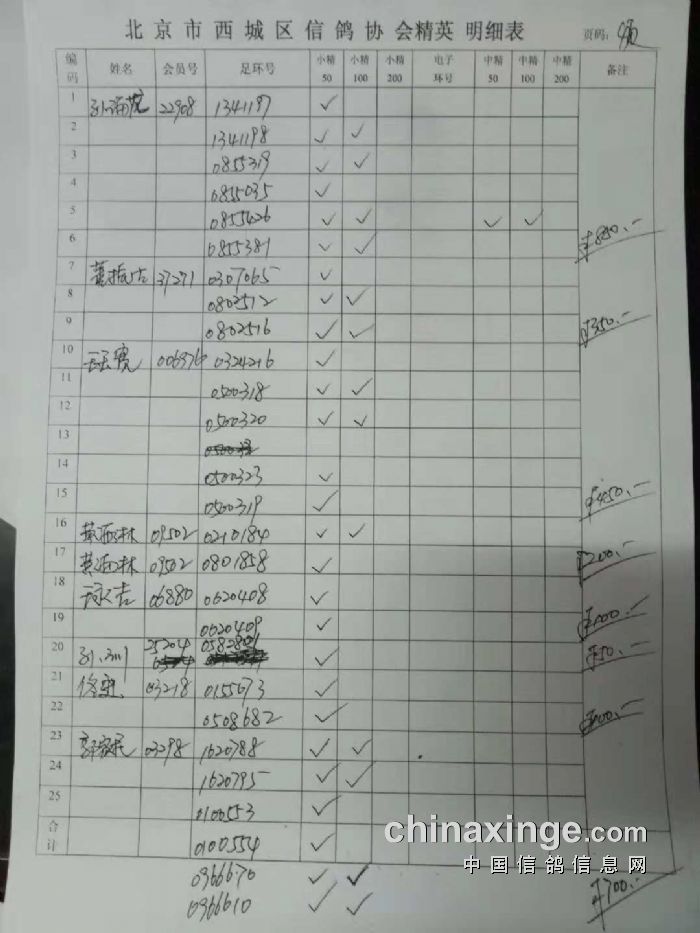 北京市西城区信鸽协会精英 明细表 页码:
编码 姓名 会员号 足环号 小精50 小精100 小精200 电子环号 中精50 中精100 中精200 备注
1 22908 1341197 ✓
2 1341198 ✓ ✓
3 0855319 ✓ ✓
4 0855035 ✓
5 0855426 ✓ ✓ ✓ ✓
6 0855381 ✓ ✓ ¥850.-
7 37271 0307065 ✓
8 0802512 ✓ ✓
9 0802516 ✓ ✓ ¥350.-
10 006976 0324216 ✓
11 0500318 ✓ ✓
12 0500320 ✓ ✓
13
14 0500323 ✓
15 0500319 ✓ ¥450.-
16 黄酒林 09502 0210184 ✓ ✓
17 黄酒林 09502 0801858 ✓ ¥200.-
18 06880 0620408 ✓
19 0620409 ✓ ¥100.-
20 25204 ✓ ¥50.-
21 03218 0155673 ✓
22 0508682 ✓ ¥100.-
23 03298 1620788 ✓ ✓
24 1620795 ✓ ✓
25 0100553 ✓
合计 0100554 ✓
0966670 ✓ ✓
0966610 ✓ ✓ ¥700.-
chinaxinge.com
中国信鸽信息网